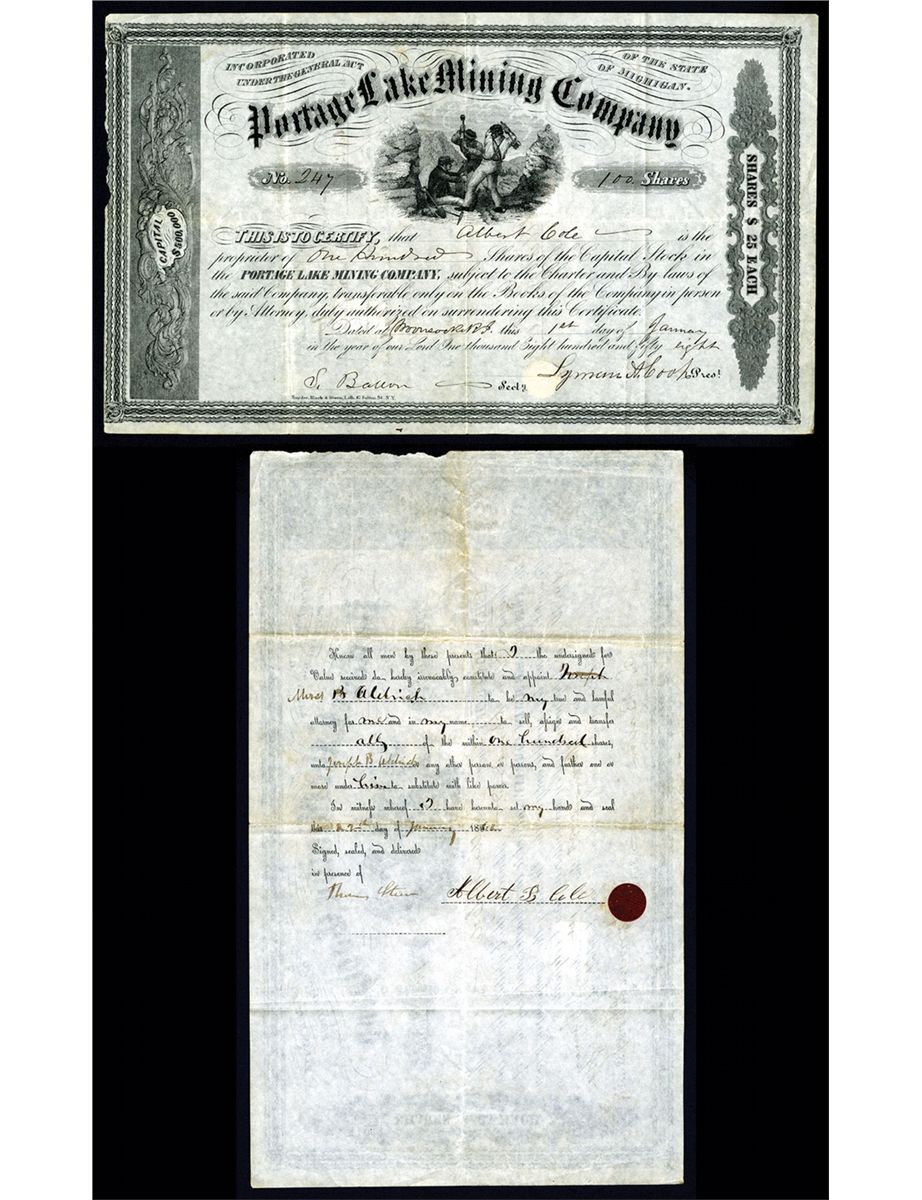 INCORPORATED
UNDER THE GENERAL ACT
OF THE STATE
OF MICHIGAN.
Portage Lake Mining Company
No. 247
100 Shares
CAPITAL
$500,000
SHARES $ 25 EACH
THIS IS TO CERTIFY, that Albert Cole is the
proprietor of One Hundred Shares of the Capital Stock in
the PORTAGE LAKE MINING COMPANY, subject to the Charter and By laws of
the said Company, transferable only on the Books of the Company in person
or by Attorney, duly authorized on surrendering this Certificate.
Dated at Woonsocket R.I. this 1st day of January
in the year of our Lord One thousand Eight hundred and fifty eight
S. Ballou Secty.
Lyman A. Cook Prest.
Snyder, Black & Sturn, Lith. 87 Fulton St. N.Y.
Know all men by these presents that I the undersigned for
Value received do hereby irrevocably constitute and appoint Joseph
Moses B Aldrich to be my true and lawful
attorney for me and in my name to sell, assign and transfer
all of the within One hundred shares,
unto Joseph B Aldrich or any other person or persons, and further one or
more under him to substitute with like power.
In witness whereof I have hereunto set my hand and seal
this day of January 18
Signed, sealed, and delivered
in presence of
Albert S Cole